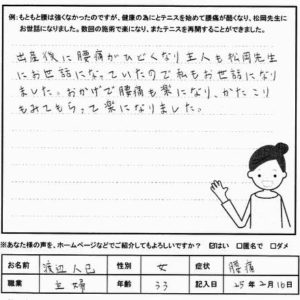 例:もともと腰は強くなかったのですが、健康の為にとテニスを始めて腰痛が酷くなり、松岡先生に
お世話になりました。数回の施術で楽になり、またテニスを再開することができました。
出産後に腰痛がひどくなり主人も松岡先生
にお世話になっていたので私もお世話になり
ました。おかげで腰痛も楽になり、かたこり
もみてもらって楽になりました。
※あなた様の声を、ホームページなどでご紹介してもよろしいですか? ☑はい □匿名で □ダメ
お名前 渡辺 性別 女 症状 腰痛
職業 主婦 年齢 33 記入日 25年2月16日